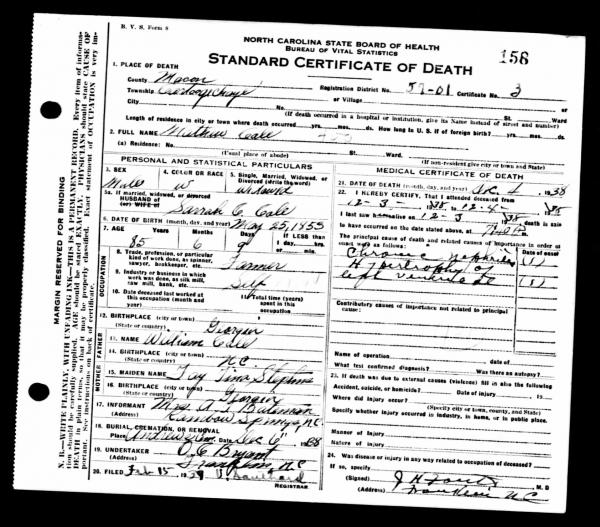 B. V. S. Form 8
NORTH CAROLINA STATE BOARD OF HEALTH
BUREAU OF VITAL STATISTICS
156
STANDARD CERTIFICATE OF DEATH
1. PLACE OF DEATH
County Macon
Registration District No. 57-01 Certificate No. 3
Township
or Village
City
No. St. Ward
(If death occurred in a hospital or institution, give its Name instead of street and number)
Length of residence in city or town where death occurred yrs. mos. ds. How long in U. S. if of foreign birth? yrs. mos. ds.
2. FULL NAME Cale
(a) Residence: No. St. Ward.
(Usual place of abode) (If non-resident give city or town and State)
PERSONAL AND STATISTICAL PARTICULARS
3. SEX
Male
4. COLOR OR RACE
W
5. Single, Married, Widowed, or Divorced (write the word)
Widowed
5a. If married, widowed, or divorced
HUSBAND of
(or) WIFE of Sarrah C. Cale
6. DATE OF BIRTH (month, day, and year) May 25, 1853
7. AGE Years Months Days If LESS than
1 day, hrs.
or min.
85 6 9
OCCUPATION
8. Trade, profession, or particular kind of work done, as spinner, sawyer, bookkeeper, etc. Farmer
9. Industry or business in which work was done, as silk mill, saw mill, bank, etc. Self
10. Date deceased last worked at this occupation (month and year)
11. Total time (years) spent in this occupation
12. BIRTHPLACE (city or town) Georgia
(State or country)
FATHER
13. NAME William Cale
14. BIRTHPLACE (city or town) N.C.
(State or country)
MOTHER
15. MAIDEN NAME Stephens
16. BIRTHPLACE (city or town) Georgia
(State or country)
17. INFORMANT Mrs. A. L. Bateman
(Address) Rainbow Springs N.C.
18. BURIAL, CREMATION, OR REMOVAL
Place Andrews Date Dec 6 1938
19. UNDERTAKER Bryant
(Address) Franklin N.C.
20. FILED Feb 15 1939
REGISTRAR
MEDICAL CERTIFICATE OF DEATH
21. DATE OF DEATH (month, day, and year) Dec 4 1938
22. I HEREBY CERTIFY, That I attended deceased from
12-3- 1938, to 12-4- 1938
I last saw h alive on 12-3 1938, death is said
to have occurred on the date stated above, at
The principal cause of death and related causes of importance in order of onset were as follows: Date of onset
Chronic nephritis
Hypertrophy of
left ventricle
Contributory causes of importance not related to principal cause:
Name of operation date of
What test confirmed diagnosis? Was there an autopsy?
23. If death was due to external causes (violence) fill in also the following:
Accident, suicide, or homicide? Date of injury 19
Where did injury occur?
(Specify city or town, county, and State)
Specify whether injury occurred in industry, in home, or in public place.
Manner of Injury
Nature of injury
24. Was disease or injury in any way related to occupation of deceased?
If so, specify
(Signed) M. D
(Address) Franklin N.C
MARGIN RESERVED FOR BINDING
N. B.—WRITE PLAINLY, WITH UNFADING INK—THIS IS A PERMANENT RECORD. Every item of information should be carefully supplied. AGE should be stated EXACTLY. PHYSICIANS should state CAUSE OF DEATH in plain terms, so that it may be properly classified. Exact statement of OCCUPATION is very important. See instructions on back of certificate.